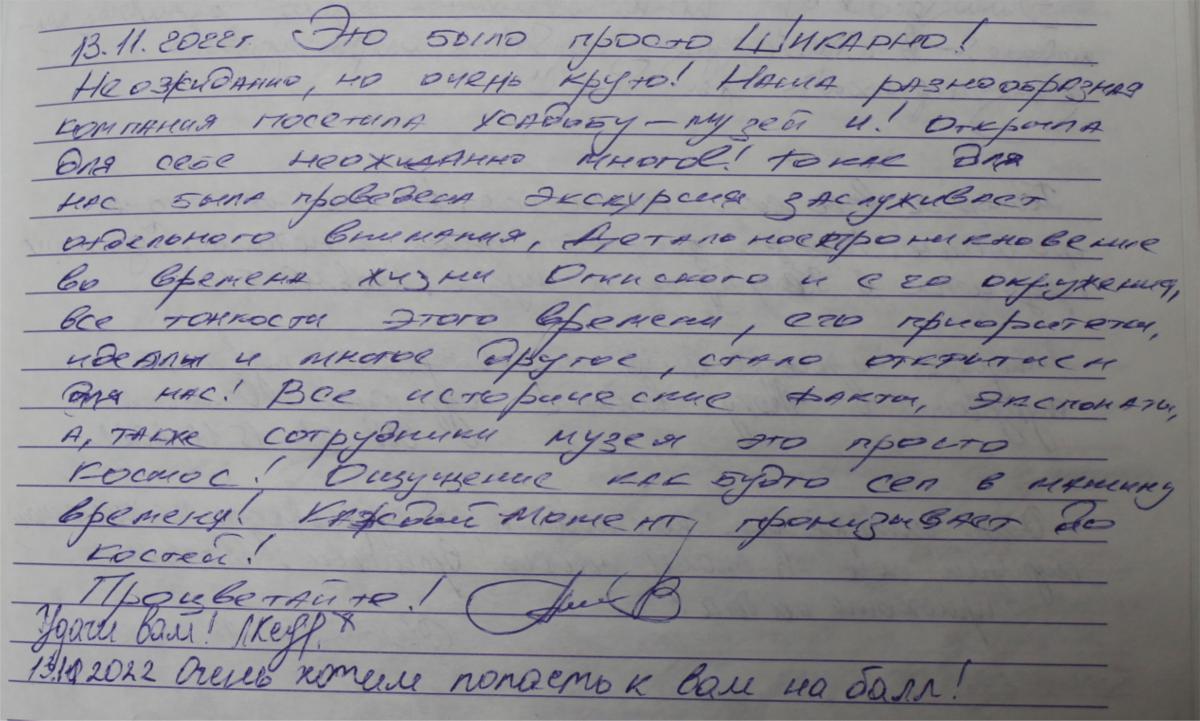 13.11.2022г. Это было просто Шикарно!
Неожиданно, но очень круто! Наша разнообразная
компания посетила усадьбу-музей и! открыла
для себе неожиданно много! то как для
нас была проведена экскурсия заслуживает
отдельного внимания, Детальное проникновение
во времена жизни Огинского и его окружения,
все тонкости этого времени, его приоритеты,
идеалы и многое другое, стало открытием
для нас! Все исторические факты, экспонаты,
а, также сотрудники музея это просто
Космос! Ощущение как будто сел в машину
времени! Каждый момент пронизывает до
костей!
Процветайте!
Удачи вам!
2022 Очень хотим попасть к вам на балл!